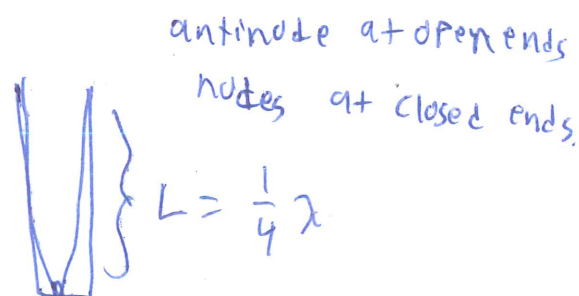 antinode at open ends
nodes at closed ends.
L = 1/4 λ